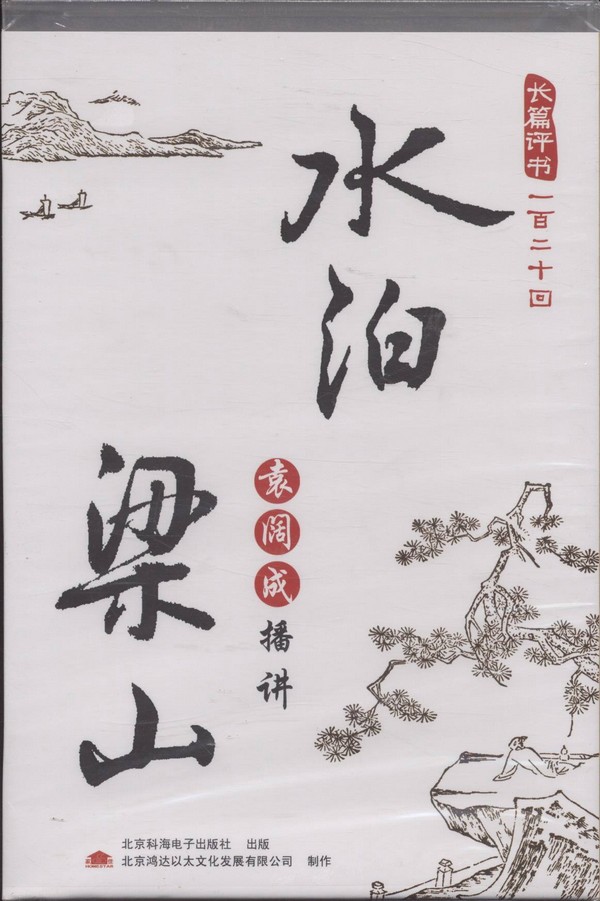 长篇评书
一百二十回
水泊
梁山
袁阔成播讲
北京科海电子出版社 出版
北京鸿达以太文化发展有限公司 制作